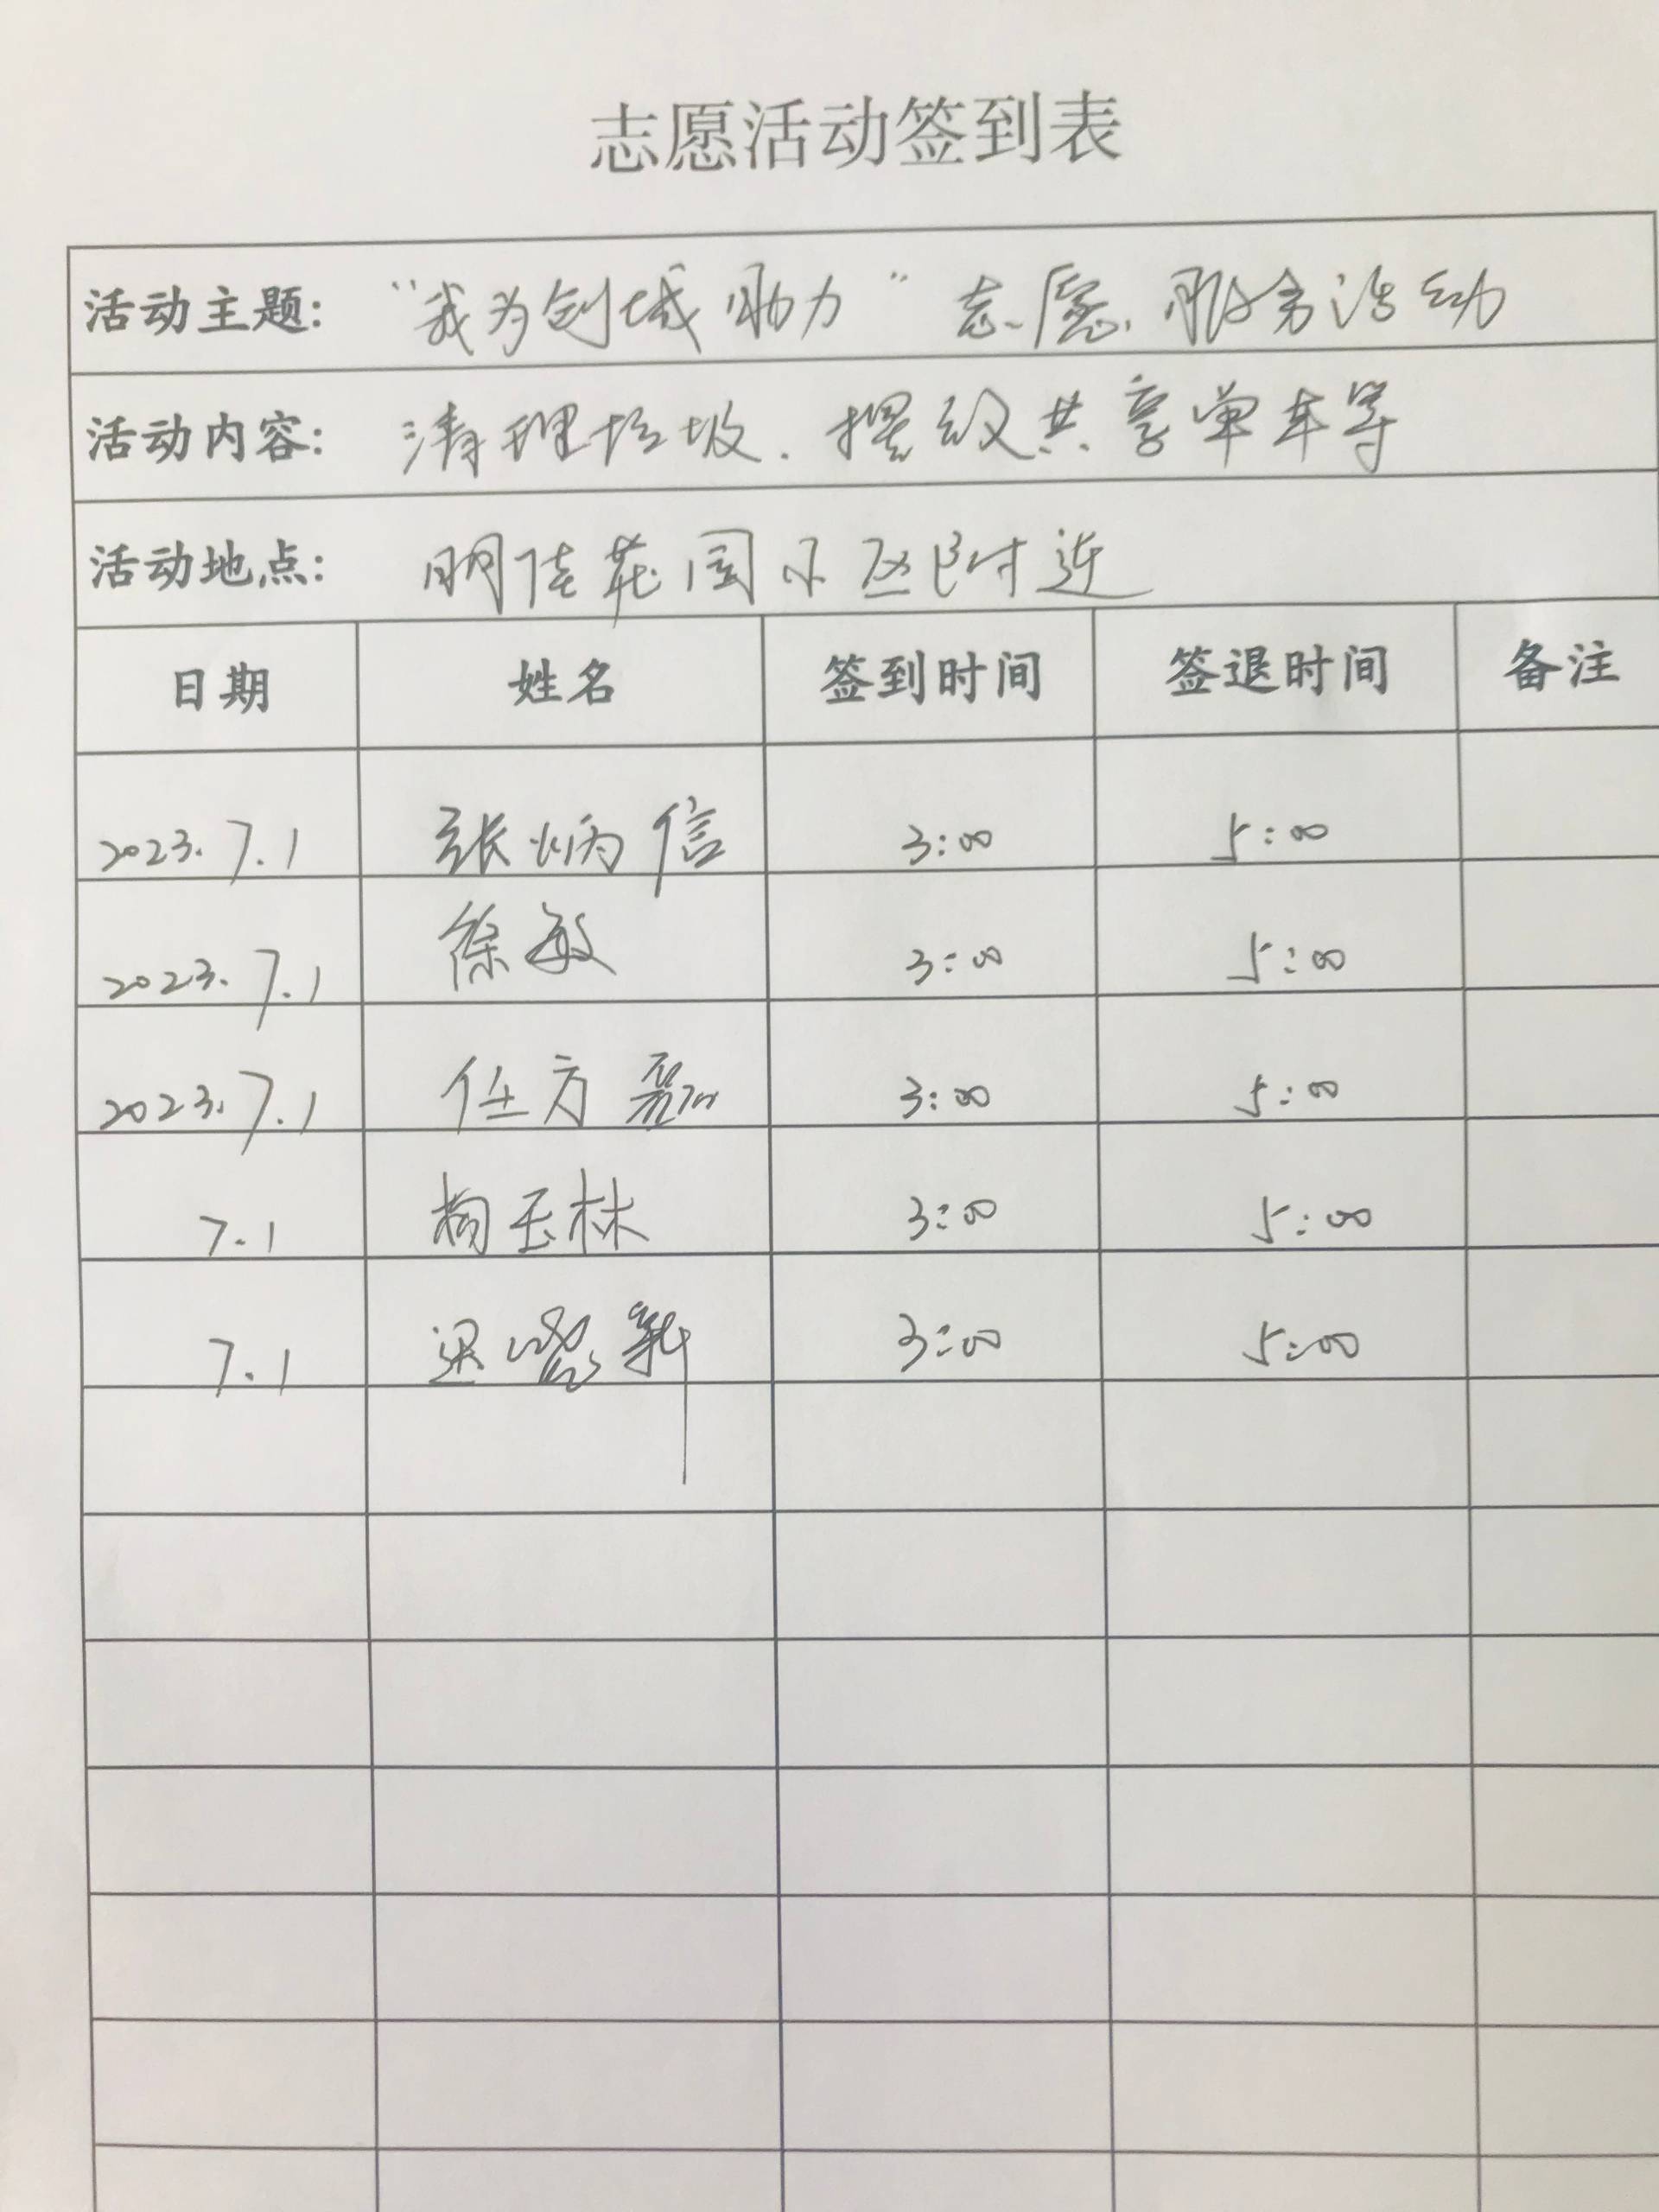 志愿活动签到表
活动主题: "我为创城助力"志愿服务活动
活动内容: 清理垃圾.摆放共享单车等
活动地点: 明佳花园小区附近
日期 姓名 签到时间 签退时间 备注
2023.7.1 张炳信 3:00 5:00
2023.7.1 徐敏 3:00 5:00
2023.7.1 任方磊 3:00 5:00
7.1 杨玉林 3:00 5:00
7.1 3:00 5:00